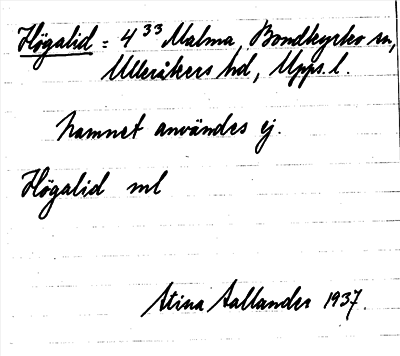 Högalid = 4³³ Malma, Bondkyrko sn,
Ulleråkers hd, Upps. l.
Namnet användes ej.
Högalid ml
Stina Aallander 1937.